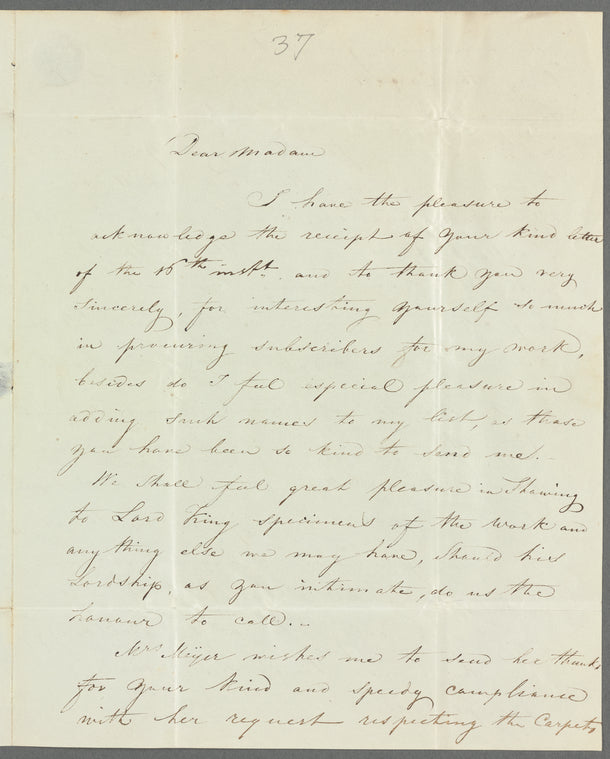 37
Dear Madam
I have the pleasure to
acknowledge the reciept of your kind letter
of the 16th inst. and to thank you very
sincerely, for interesting yourself so much
in procuring subscribers for my work,
besides do I feel especial pleasure in
adding such names to my list, as those
you have been so kind to send me.-
We shall feel great pleasure in Shewing
to Lord King specimens of the work and
any thing else we may have, should his
Lordship, as you intimate, do us the
honour to call...
Mrs Meyer wishes me to send her thanks
for your kind and speedy compliance
with her request respecting the Carpets